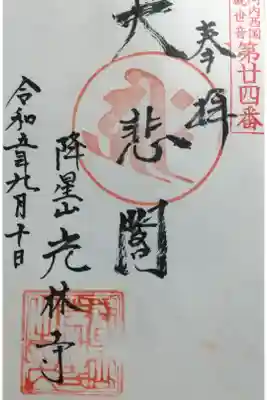 河内西国
観世音
第廿四番
奉拝
大悲閣
降星山
光林寺
令和五年九月十日